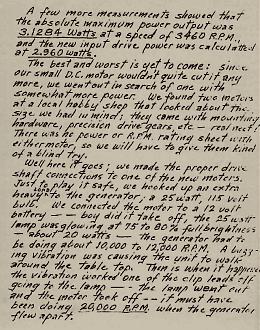 A few more measurements showed that
the absolute maximum power output was
3.1284 Watts at a speed of 3460 R.P.M.
and the new input drive power was calculated
at 2.960 watts.
The best and worst is yet to come: Since
our small D.C. motor wouldn't quite cut it any
more, we went out in search of one with
somewhat more power. We found two meters
at a local hobby shop that looked about the
size we had in mind; they came with mounting
hardware, precision drive gears, etc — real neat!
There was no power or R.P.M. rating sheet with
either motor, so we will have to give them kind
of a blind try.
Well here it goes; we made the proper drive
shaft connections to one of the new meters.
Just to play it safe, we hooked up an extra
heavy load to the generator, a 25 watt, 115 volt
bulb. We connected the motor to a 12 volt
battery — boy did it take off, the 25 watt
lamp was glowing at 75 to 80% full brightness
— about 20 watts — the generator had to
be doing about 10,000 to 12,000 R.P.M. A buzz-
ing vibration was causing the unit to walk
around the table top. Then is when it happened
the vibration worked one of the clip leads off
going to the lamp — the lamp went out
and the motor took off -- it must have
been doing 20,000 R.P.M. when the generator
flew apart.